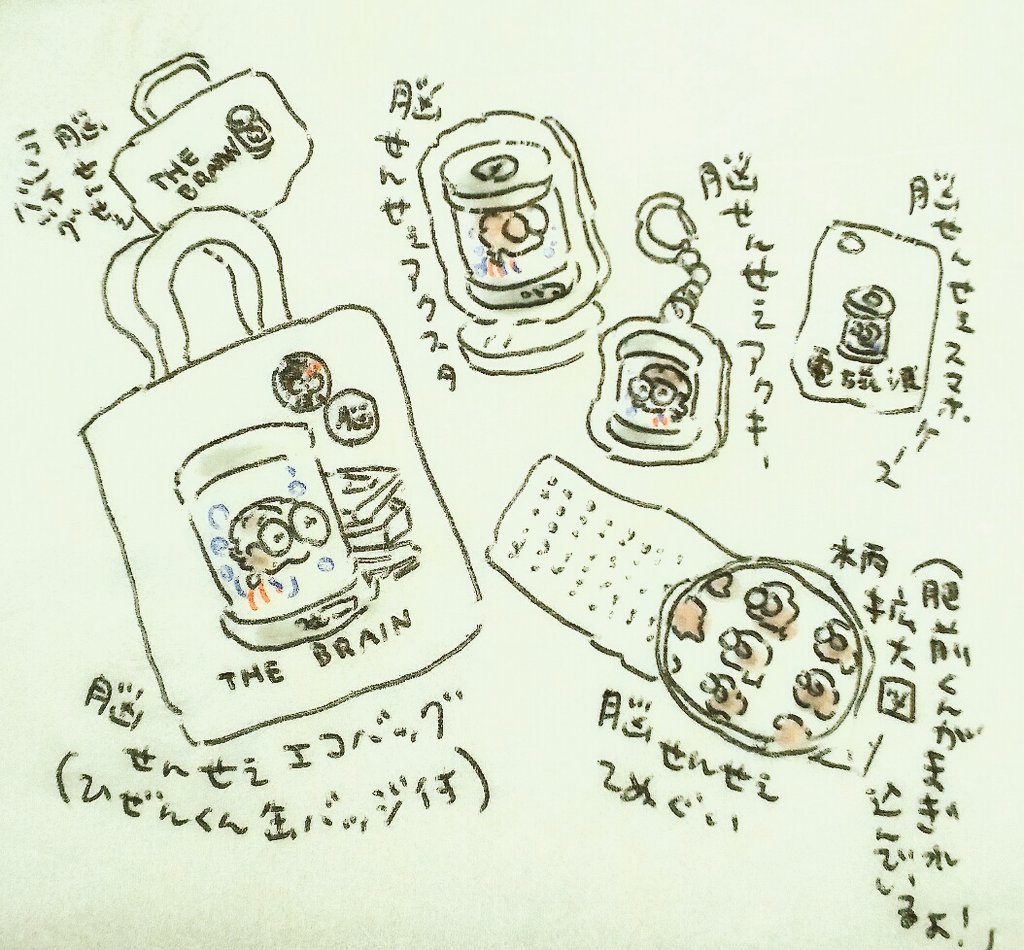 脳せんせえ
THE
BRAIN
脳せんせえアクスタ
脳せんせえアクキー
脳せんせえスマホケース
脳
THE BRAIN
脳せんせえエコバッグ
(ひぜんくん缶バッジ付)
脳せんせえ
てぬぐい
柄拡大図
くんがまぎれ
込んでいるよ!